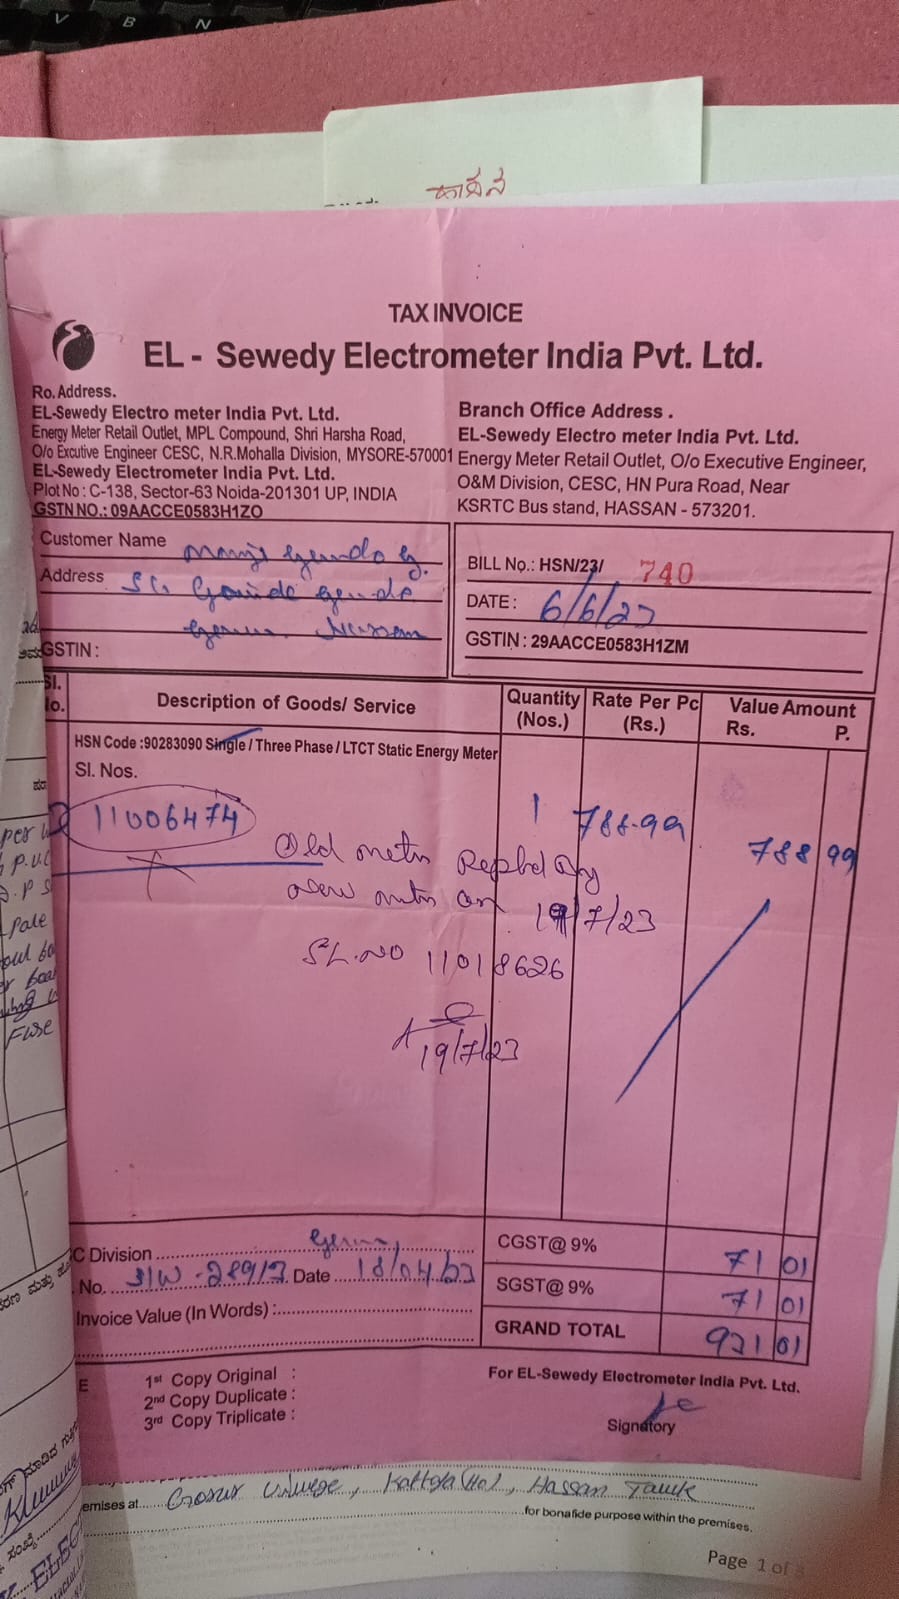 V B N
ಕಾವೆನ
TAX INVOICE
EL - Sewedy Electrometer India Pvt. Ltd.
Ro. Address.
EL-Sewedy Electro meter India Pvt. Ltd.
Energy Meter Retail Outlet, MPL Compound, Shri Harsha Road,
O/o Excutive Engineer CESC, N.R.Mohalla Division, MYSORE-570001
EL-Sewedy Electrometer India Pvt. Ltd.
Plot No : C-138, Sector-63 Noida-201301 UP, INDIA
GSTN NO.: 09AACCE0583H1ZO
Branch Office Address .
EL-Sewedy Electro meter India Pvt. Ltd.
Energy Meter Retail Outlet, O/o Executive Engineer,
O&M Division, CESC, HN Pura Road, Near
KSRTC Bus stand, HASSAN - 573201.
Customer Name
Address
GSTIN :
BILL No.: HSN/23/ 740
DATE : 6/6/23
GSTIN : 29AACCE0583H1ZM
Sl. No. Description of Goods/ Service Quantity (Nos.) Rate Per Pc (Rs.) Value Amount Rs. P.
HSN Code :90283090 Single / Three Phase / LTCT Static Energy Meter
Sl. Nos.
11006474 1 788.99 788 99
Old metr Repld By
new metr on 19/7/23
SL.NO 11018626
19/7/23
C Division
No. SIW-28917 Date 18/04/23
Invoice Value (In Words) :
CGST@ 9% 71 01
SGST@ 9% 71 01
GRAND TOTAL 931 01
E 1st Copy Original :
2nd Copy Duplicate :
3rd Copy Triplicate :
For EL-Sewedy Electrometer India Pvt. Ltd.
Signatory
emises at Gorur Village, Kattaya (Ho), Hassan Taluk
for bonafide purpose within the premises.
Page 1 of 3